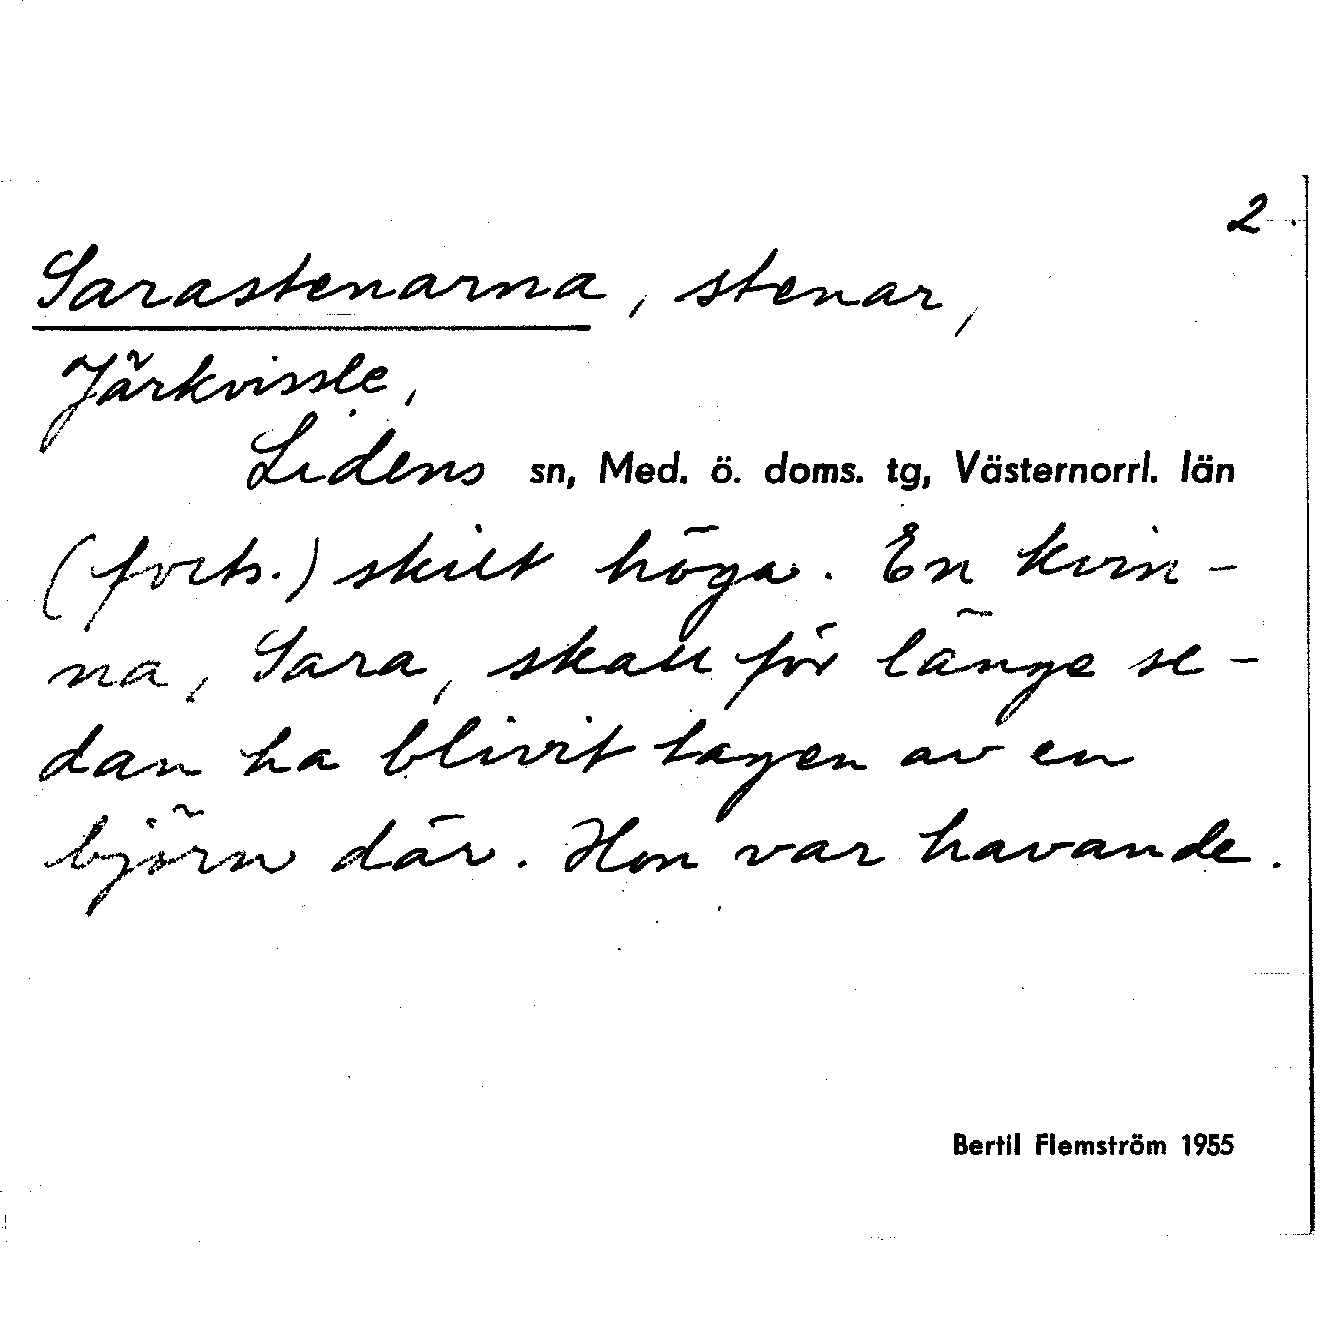 2.
Sarastenarna, stenar,
Järkvissle,
Lidens sn, Med. ö. doms. tg, Västernorrl. län
(forts.) skilt höga. En kvin-
na, Sara, skall för länge se-
dan ha blivit tagen av en
björn där. Hon var havande.
Bertil Flemström 1955